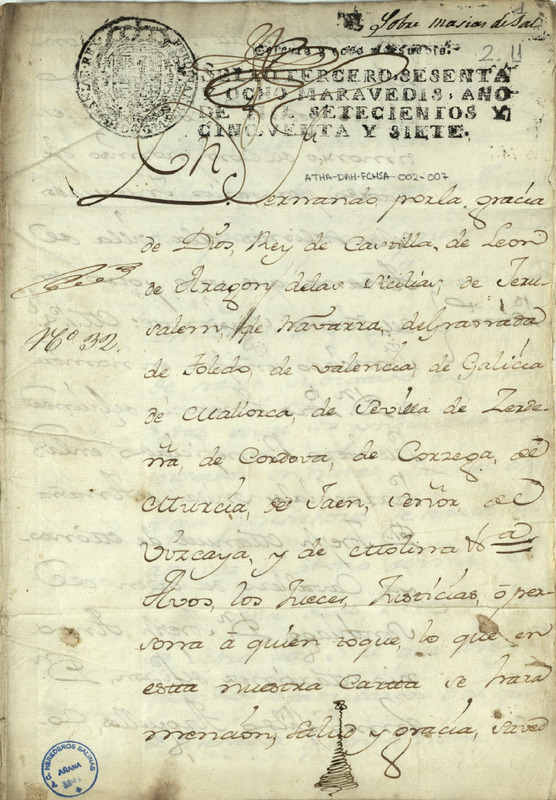 Sobre masias de Sal.
2
Sesenta y ocho mrs. Sello
SELLO TERCERO, SESENTA
Y OCHO MARAVEDIS, AÑO
DE MIL SETECIENTOS Y
CINQVENTA Y SIETE.
ATHA-DAH-FCHSA-002-007
Fernando por la gracia
de Dios, Rey de Castilla, de Leon
de Aragon, delas Sicilias, de Jeru
salem, de Navarra, de Granada
Nº 32.
de Toledo, de valencia, de Galicia
de Mallorca, de Sevilla de Zerde
ña, de Cordova, de Corzega, de
Murcia, de Jaen, Señor, de
Vizcaya, y de Molina &ª
Avos, los Jueces, Justicias, ó per
sona á quien toque, lo que en
esta nuestra Carta se hara
mención, salud y gracia, saved
HEREDEROS SALINAS
AÑANA